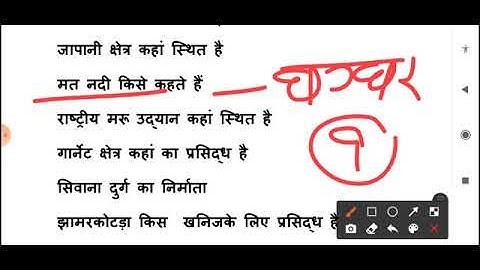 जापानी क्षेत्र कहां स्थित है
मत नदी किसे कहते हैं घग्घर
राष्ट्रीय मरू उद्यान कहां स्थित है ९
गार्नेट क्षेत्र कहां का प्रसिद्ध है
सिवाना दुर्ग का निर्माता
झामरकोटड़ा किस खनिजके लिए प्रसिद्ध है